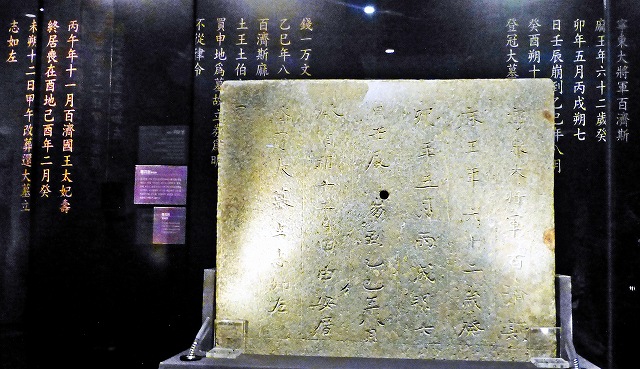 寧東大將軍百濟斯
麻王年六十二歲癸
卯年五月丙戌朔七
日壬辰崩到乙巳年八月
癸酉朔十
登冠大墓
錢一万文
乙巳年八
百濟斯麻
土王土伯
買申地爲墓故立券爲明
不從律令
丙午年十一月百濟國王太妃壽
終居喪在酉地己酉年二月癸
未朔十二日甲午改葬還大墓立
志如左
寧東大將軍百濟斯
麻王年六十二歲癸
卯年五月丙戌朔七
日壬辰崩到乙巳年八月
癸酉朔十二日甲申安厝
登冠大墓立志如左